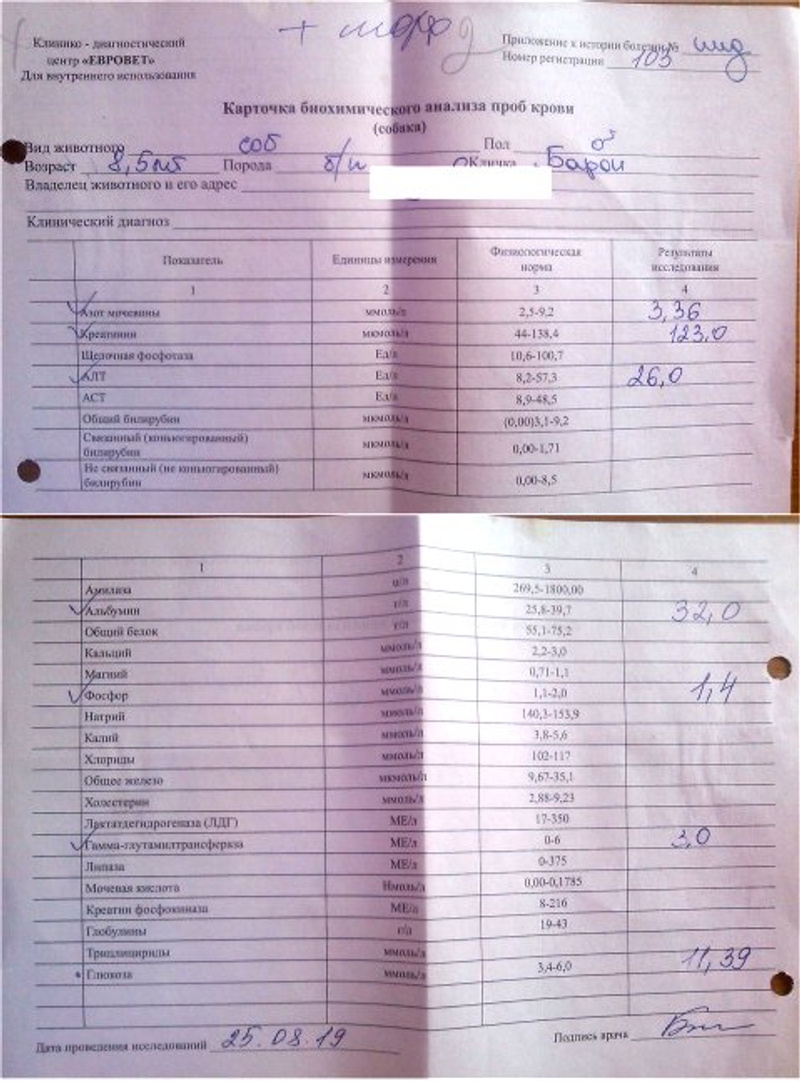 + морф
Клинико - диагностический
центр «ЕВРОВЕТ»
Для внутреннего использования
Приложение к истории болезни №
Номер регистрации 103
Карточка биохимического анализа проб крови
(собака)
Вид животного соб Пол ♂
Возраст 8,5 лет Порода б/п Кличка Барон
Владелец животного и его адрес
Клинический диагноз
Показатель Единицы измерения Физиологическая норма Результаты исследования
1 2 3 4
Азот мочевины ммоль/л 2,5-9,2 3,36
Креатинин мкмоль/л 44-138,4 123,0
Щелочная фосфотаза Ед/л 10,6-100,7
АЛТ Ед/л 8,2-57,3 26,0
АСТ Ед/л 8,9-48,5
Общий билирубин мкмоль/л (0,00)3,1-9,2
Связанный (коньюгированный) билирубин мкмоль/л 0,00-1,71
Не связанный (не коньюгированный) билирубин мкмоль/л 0,00-8,5
1 2 3 4
Амилаза 269,5-1800,00
Альбумин г/л 25,8-39,7 32,0
Общий белок г/л 55,1-75,2
Кальций ммоль/л 2,2-3,0
Магний ммоль/л 0,71-1,1
Фосфор ммоль/л 1,1-2,0 1,4
Натрий ммоль/л 140,3-153,9
Калий ммоль/л 3,8-5,6
Хлориды ммоль/л 102-117
Общее железо мкмоль/л 9,67-35,1
Холестерин ммоль/л 2,88-9,23
Лактатдегидрогеназа (ЛДГ) МЕ/л 17-350
Гамма-глутамилтрансфераза МЕ/л 0-6 3,0
Липаза МЕ/л 0-375
Мочевая кислота Нмоль/л 0,00-0,1785
Креатин фосфокиназа МЕ/л 8-216
Глобулины г/л 19-43
Триглицириды ммоль/л
Глюкоза ммоль/л 3,4-6,0 11,39
Дата проведения исследований 25.08.19
Подпись врача